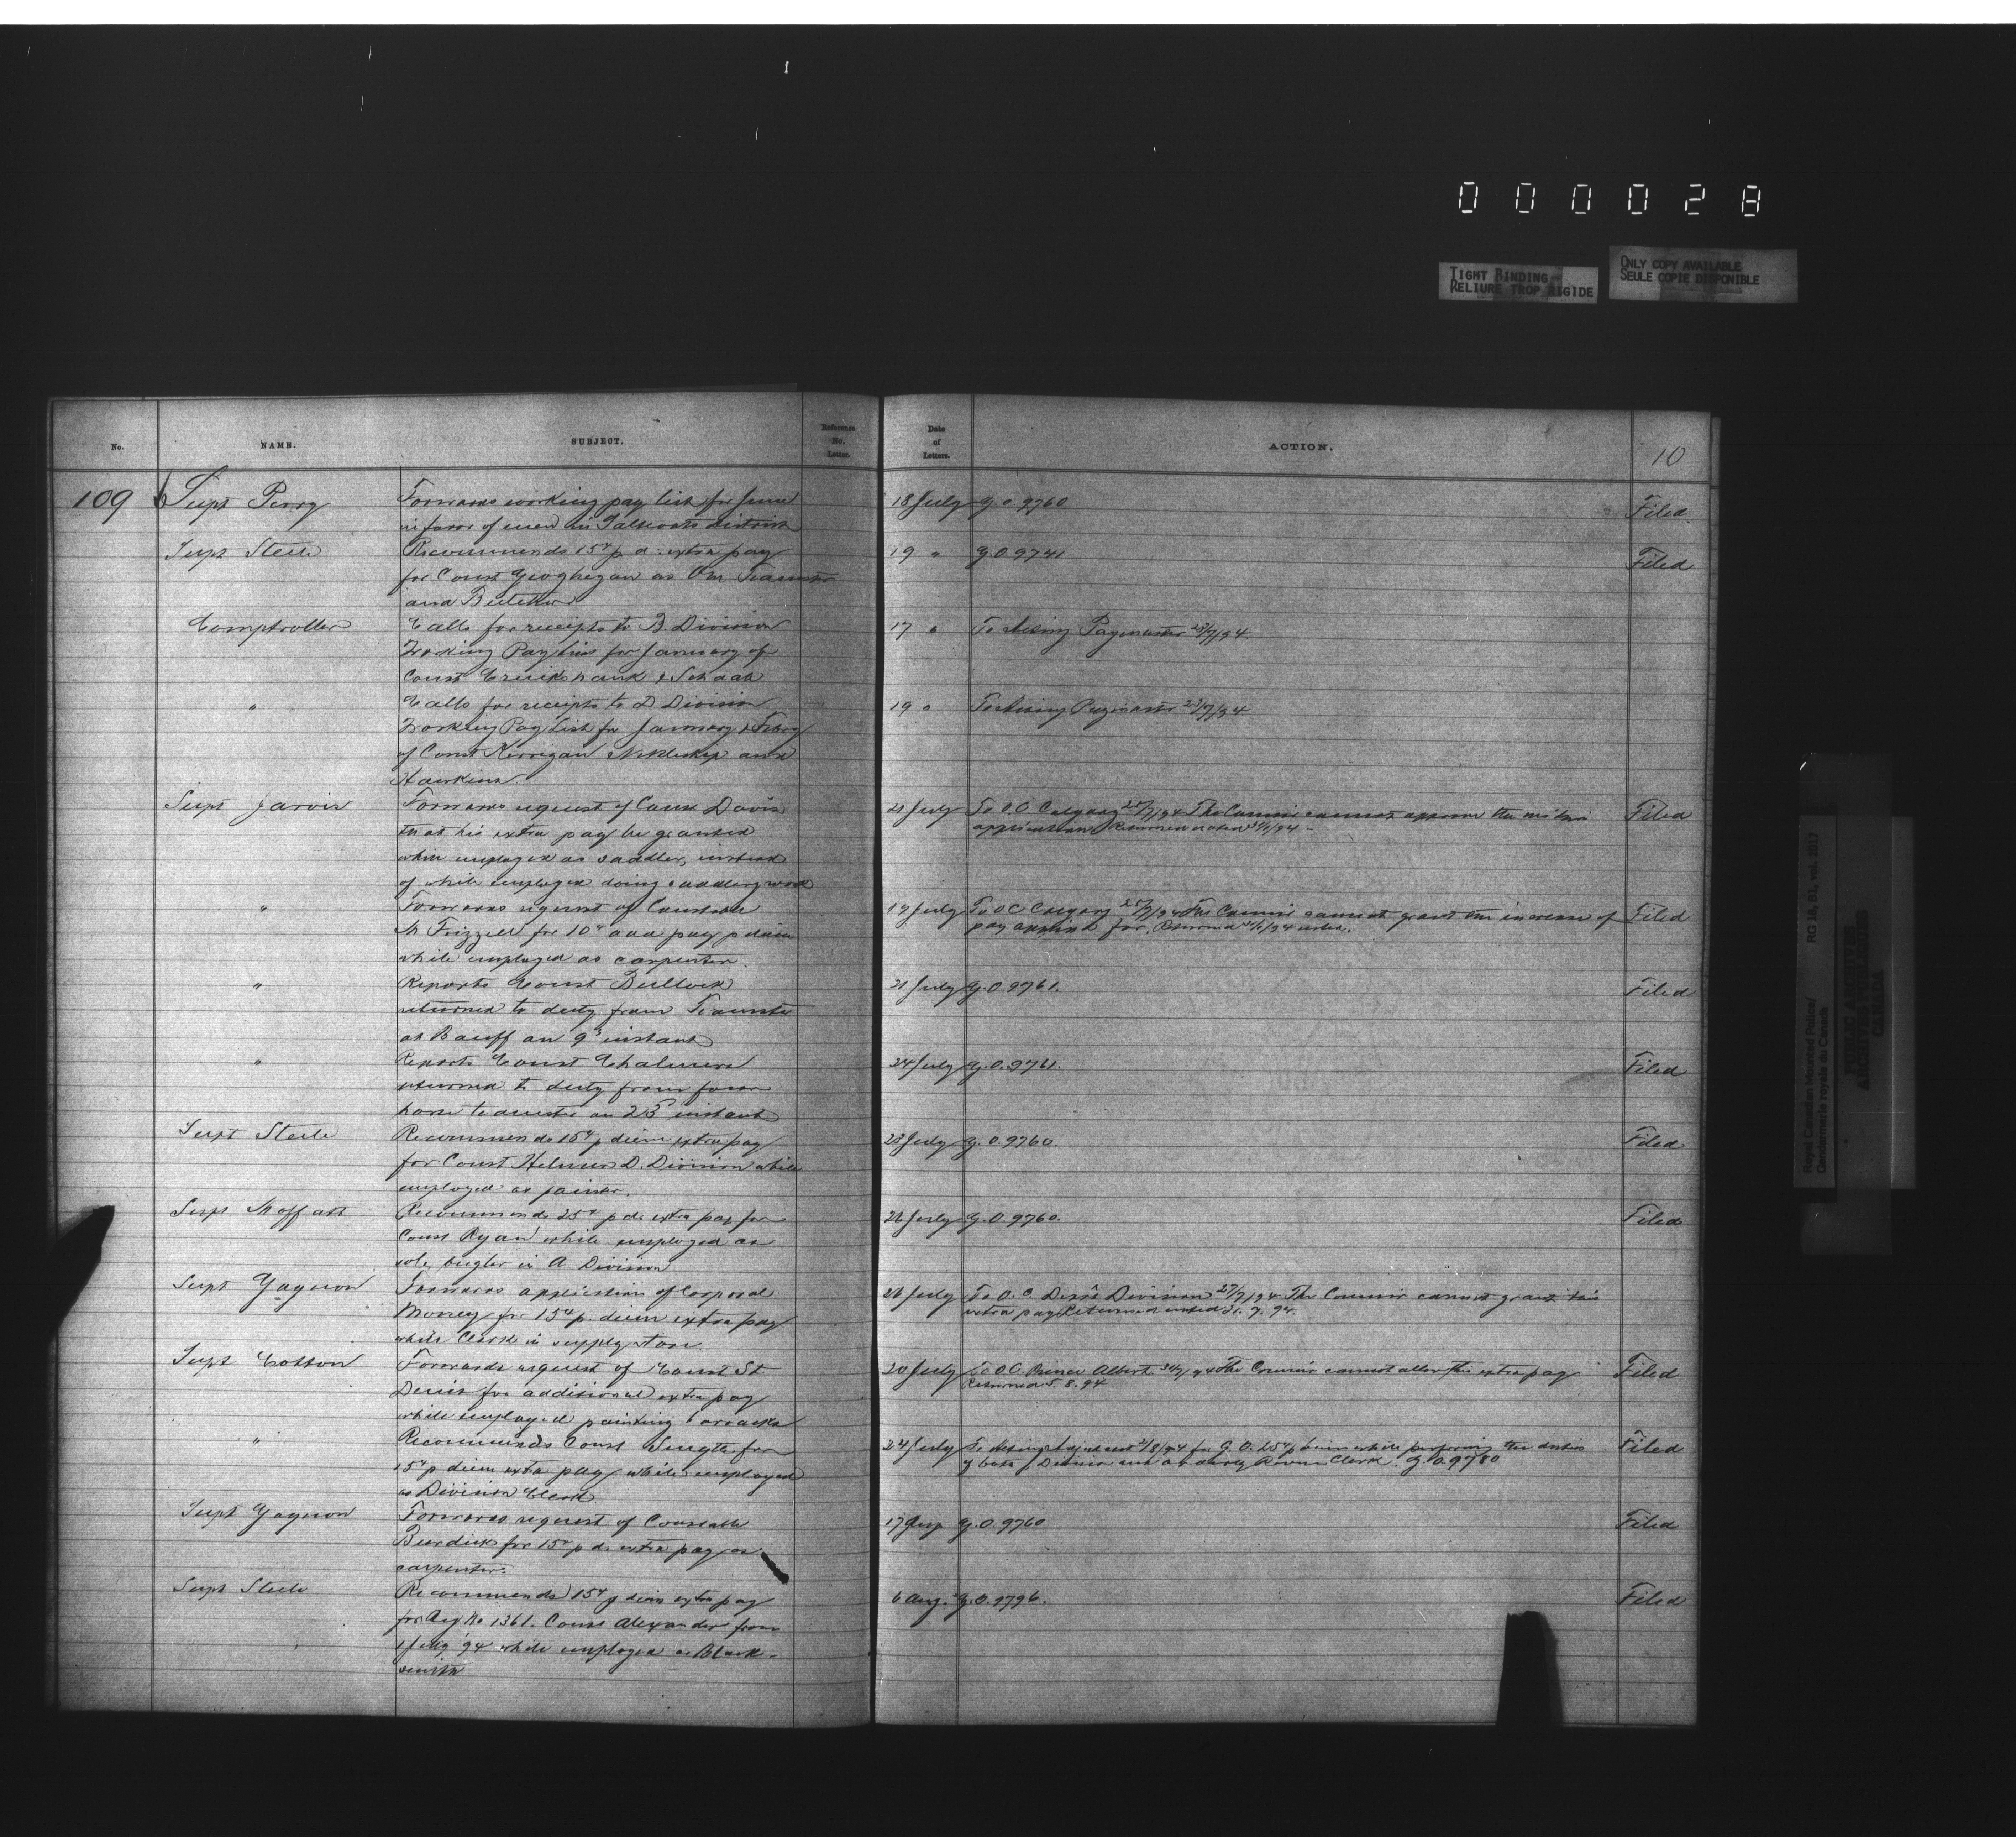 000028
TIGHT BINDING
RELIURE TROP RIGIDE
ONLY COPY AVAILABLE
SEULE COPIE DISPONIBLE
No. NAME. SUBJECT. Reference No. Letter. Date of Letters. ACTION. 10
109 Supt Perry Forwards working pay list for June 18 July G.O. 9760 Filed
in favor of men in district
Supt Steele Recommends 15¢ p d. extra pay 19 " G.O. 9741 Filed
for Const Geoghegan as Teamster
and Butcher
Comptroller Calls for receipts to B. Division 17 " To Acting Paymaster 23/7/94
Working Pay Lists for January of
Const Cruikshank & Schaab
" Calls for receipts to D Division 19 " To Acting Paymaster 23/7/94
Working Pay List for January & Feby
of Const Kerrigan and
Hawkins.
Supt Jarvis Forwards request of Const Davis 21 July To O.C Calgary 25/7/94 The Commr cannot approve the within Filed
that his extra pay be granted application Returned noted 31/7/94
while employed as saddler, instead
of while employed doing saddlery work
" Forwards request of Constable 19 July To O C Calgary 25/7/94 The Commr cannot grant the increase of Filed
M Frizzell for 10¢ add pay p diem pay applied for. Returned 31/7/94 noted.
while employed as carpenter.
" Reports Const Bullock 21 July G.O. 9761. Filed
returned to duty from Teamster
at Banff on 9th instant
" Reports Const Chalmers 24 July G.O. 9761. Filed
returned to duty from four
horse teamster on 23rd instant
Supt Steele Recommends 15¢ p diem extra pay 23 July G.O. 9760. Filed
for Const Holmes D. Division while
employed as painter.
Supt Moffatt Recommends 25¢ p d. extra pay for 26 July G.O. 9760. Filed
Const Ryan while employed as
sole bugler in A Division
Supt Gagnon Forwards application of Corporal 26 July To O.C. Depôt Division 27/7/94 The Commr cannot grant this
Money for 15¢ p. diem extra pay extra pay Returned noted 31.7.94.
while Clerk in supply store.
Supt Cotton Forwards request of Const St 20 July To O.C Prince Albert 31/7/94 The Commr cannot allow this extra pay Filed
Denis for additional extra pay Returned 5.8.94
while employed painting barracks
" Recommends Const Smyth for 24 July To Acting Adjutant 2/8/94 for G.O. 25¢ p diem while performing the duties Filed
15¢ p diem extra pay while employed of both Division and Orderly Room Clerk. G.O. 9780
as Division Clerk
Supt Gagnon Forwards request of Constable 17 G.O. 9760 Filed
Burdick for 15¢ p d. extra pay as
carpenter.
Supt Steele Recommends 15¢ p diem extra pay 6 Aug. G.O. 9796. Filed
for Reg No 1361. Const Alexander from
1 July '94 while employed as Black-
smith
Royal Canadian Mounted Police/
Gendarmerie royale du Canada
RG 18, B2, vol. 2017
PUBLIC ARCHIVES
ARCHIVES PUBLIQUES
CANADA